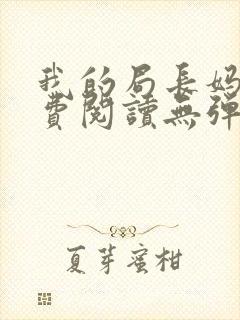 我的局長妈
費閱讀無彈
夏芽蜜柑